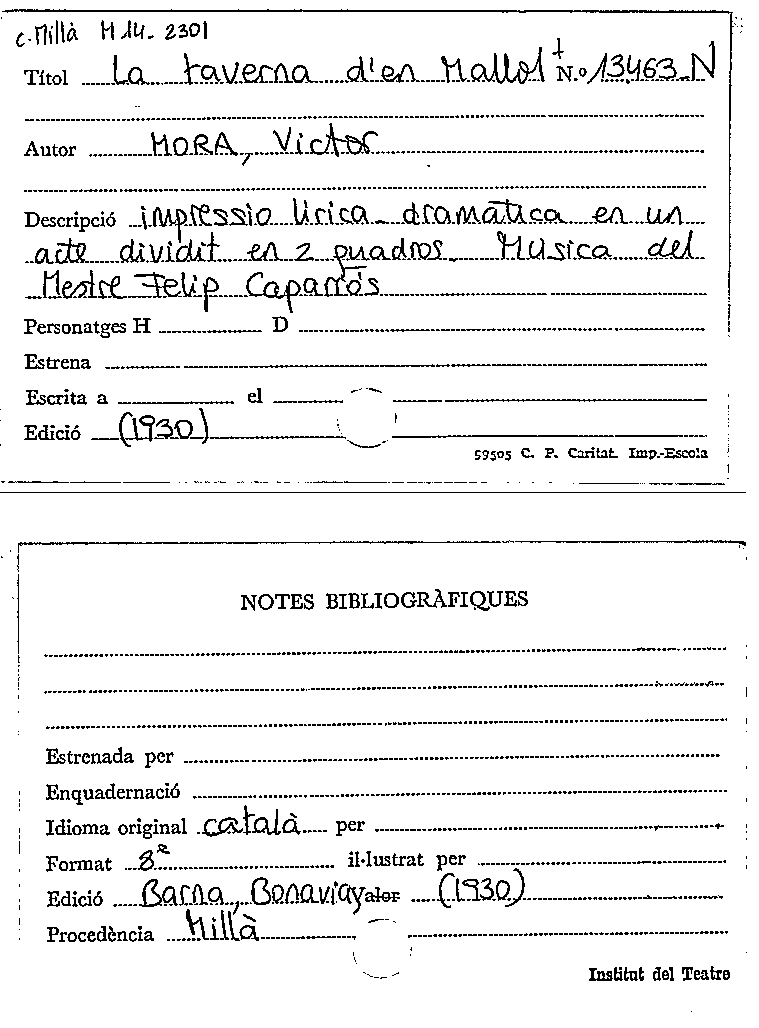 C. Millà M 14 - 2301
Títol La taverna d'en Mallol N.º 13.463-N
Autor MORA, Victor
Descripció impressio lirica-dramàtica en un
acte dividit en 2 quadros. Musica del
Mestre Felip Caparrós
Personatges H D
Estrena
Escrita a el
Edició (1930)
59505 C. P. Caritat. Imp.-Escola
NOTES BIBLIOGRÀFIQUES
Estrenada per
Enquadernació
Idioma original català per
Format 8è il·lustrat per
Edició Barna, Bonavia, Valor (1930)
Procedència Millà
Institut del Teatre